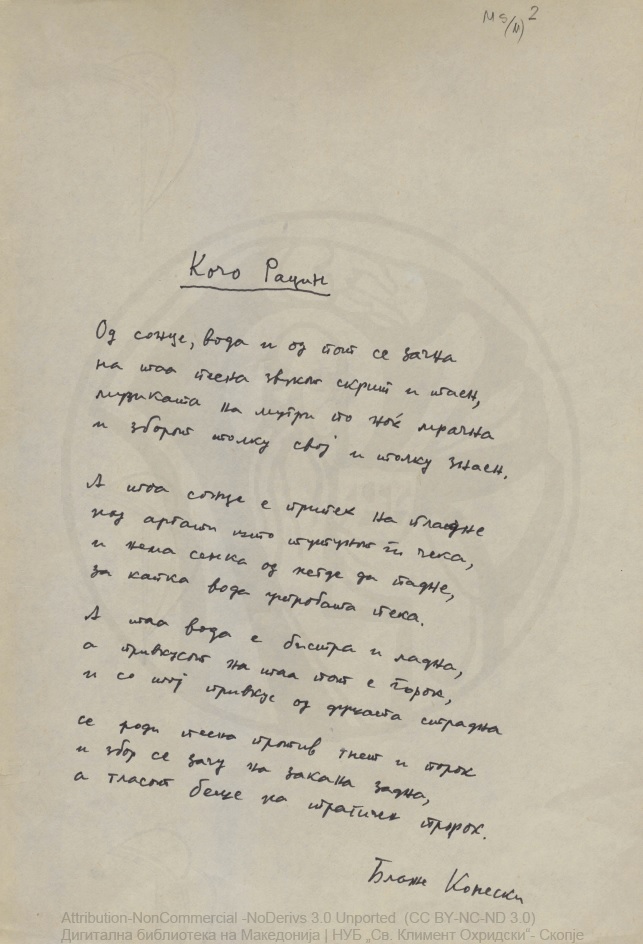 MS/(II) 2
Кочо Рацин
Од сонце, вода и од пот се зачна
на таа песна звукот скрит и таен,
музиката на мугри по ноќ мрачна
и зборот толку свој и толку знаен.
А тоа сонце е припек на пладне
над аргати што тутунот ги чека,
и нема сенка од негде да падне,
за капка вода утробата пека.
А таа вода е бистра и ладна,
а привкусот на таа пот е горок,
и со тој привкус од душата страдна
се роди песна против гнет и порок
и збор се зачу на закана задна,
а гласот беше на трагичен пророк.
Блаже Конески
Attribution-NonCommercial -NoDerivs 3.0 Unported (CC BY-NC-ND 3.0)
Дигитална библиотека на Македонија | НУБ „Св. Климент Охридски“- Скопје